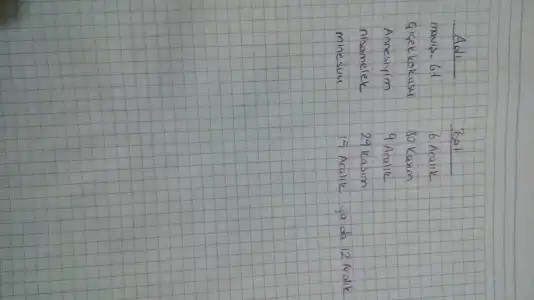 Adı Bat
maviş-61 6 Aralık
Çiçek kokusu 30 Kasım
Annesiyim 9 Aralık
nisamelek 29 Kasım
minesuu 19 Aralık ya da 12 Aralık